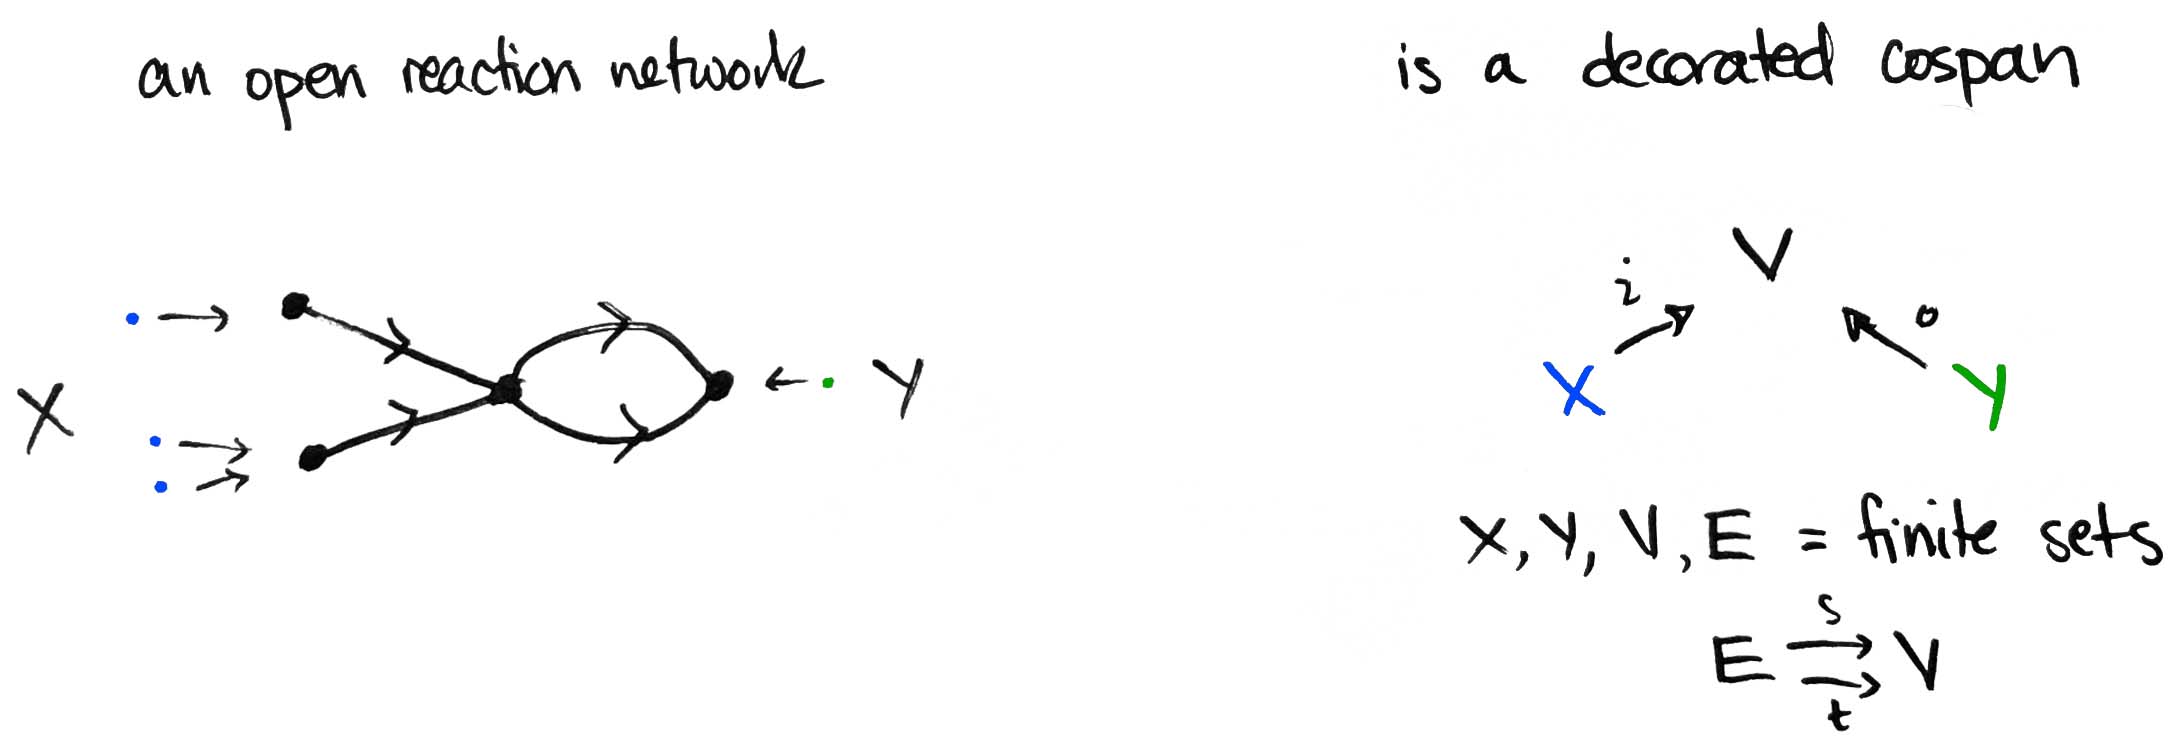 an open reaction network
is a decorated cospan
X
Y
V
i
o
X
Y
X, Y, V, E = finite sets
s
E ⇉ V
t